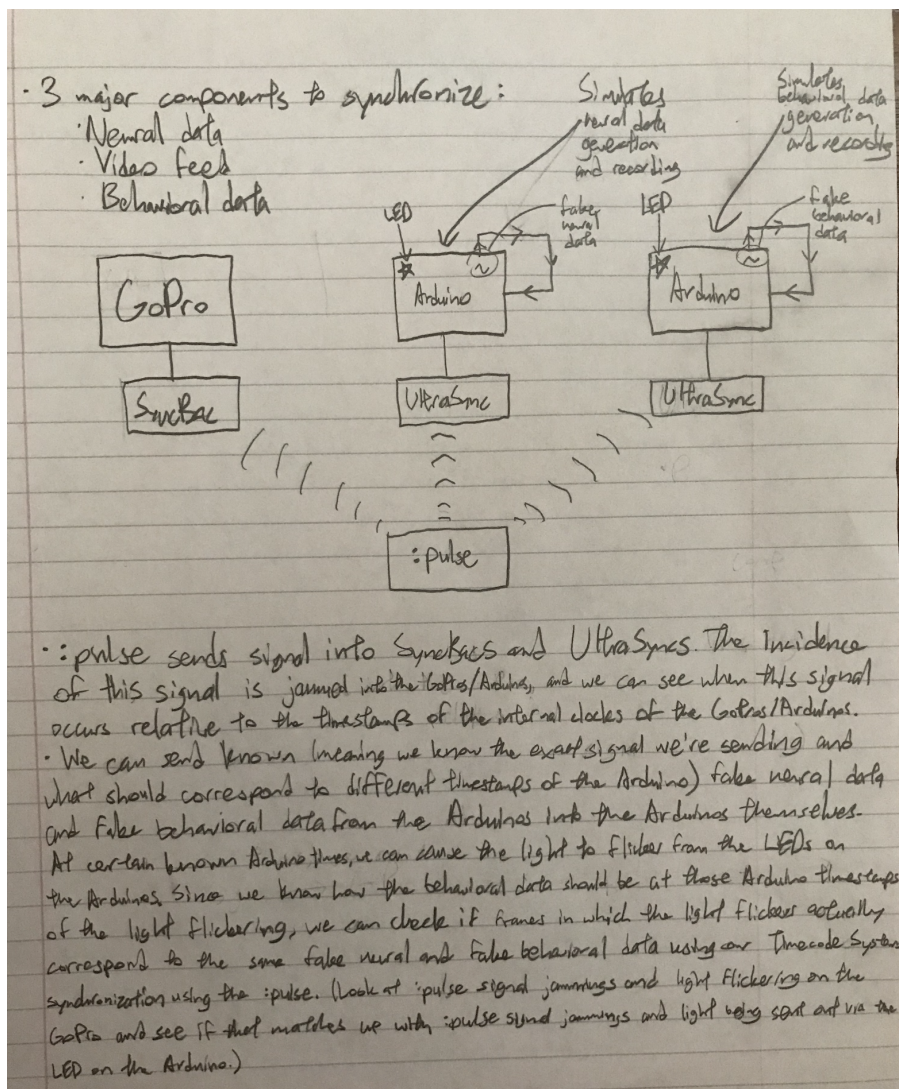 · 3 major components to synchronize:
· Neural data
· Video feed
· Behavioral data
Simulates
neural data
generation
and recording
Simulates
behavioral data
generation
and recording
LED
fake
neural
data
LED
fake
behavioral
data
GoPro
Arduino
Arduino
SyncBac
UltraSync
UltraSync
:pulse
· :pulse sends signal into SyncBacs and UltraSyncs. The incidence
of this signal is jammed into the GoPros/Arduinos, and we can see when this signal
occurs relative to the timestamps of the internal clocks of the GoPros/Arduinos.
· We can send known (meaning we know the exact signal we're sending and
what should correspond to different timestamps of the Arduino) fake neural data
and fake behavioral data from the Arduinos into the Arduinos themselves.
At certain known Arduino times, we can cause the light to flicker from the LEDs on
the Arduinos. Since we know how the behavioral data should be at those Arduino timestamps
of the light flickering, we can check if frames in which the light flickers actually
correspond to the same fake neural and fake behavioral data using our Timecode Systems
synchronization using the :pulse. (Look at :pulse signal jammings and light flickering on the
GoPro and see if that matches up with :pulse jammings and light being sent out via the
LED on the Arduino.)